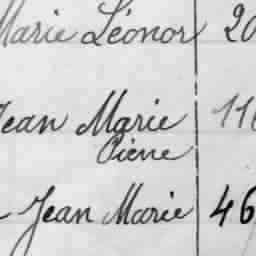 Marie Léonor 20
Jean Marie 116
Pierre
Jean Marie 46